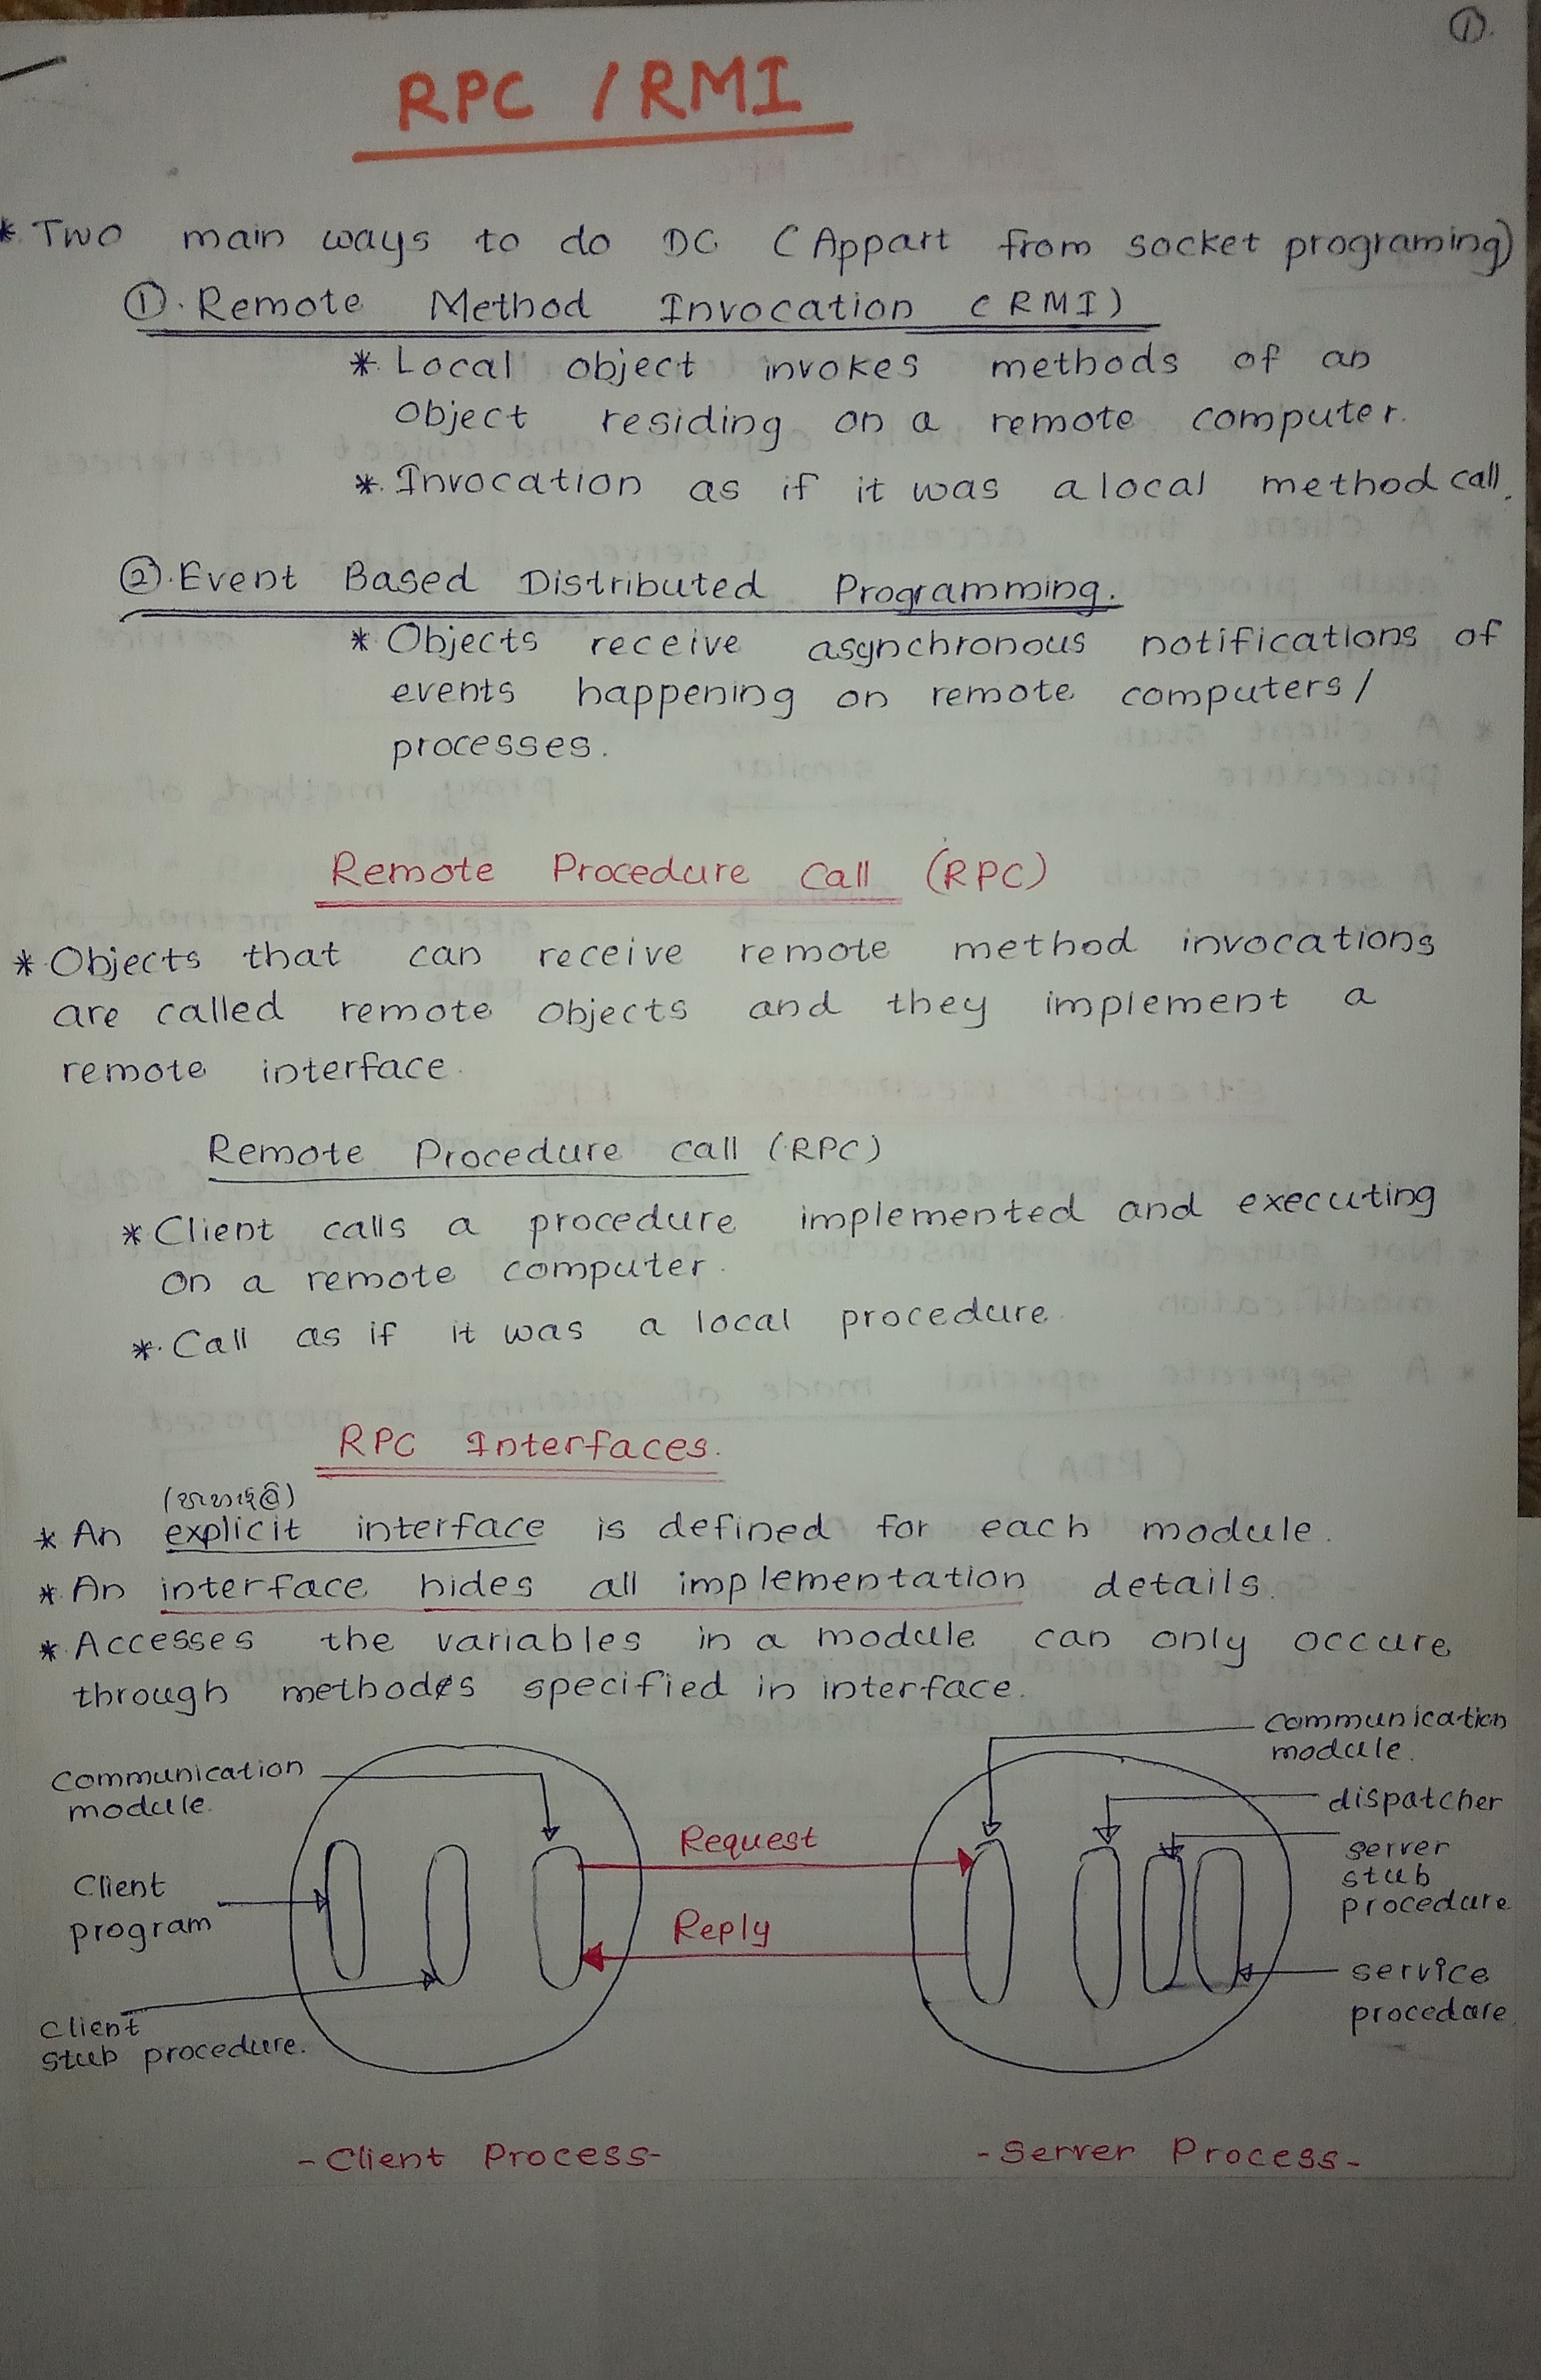 ①.
RPC / RMI
* Two main ways to do DC (Appart from socket programing)
①. Remote Method Invocation (RMI)
* Local object invokes methods of an
object residing on a remote computer.
* Invocation as if it was a local method call.
②. Event Based Distributed Programming.
* Objects receive asynchronous notifications of
events happening on remote computers/
processes.
Remote Procedure Call (RPC)
* Objects that can receive remote method invocations
are called remote objects and they implement a
remote interface.
Remote Procedure call (RPC)
* Client calls a procedure implemented and executing
on a remote computer.
* Call as if it was a local procedure.
RPC Interfaces.
* An explicit interface is defined for each module.
* An interface hides all implementation details.
* Accesses the variables in a module can only occure
through methodes specified in interface.
communication
module.
Communication
module.
dispatcher
Request
server
stub
procedure
Client
program
Reply
service
procedure
Client
stub procedure.
-Client Process-
-Server Process-